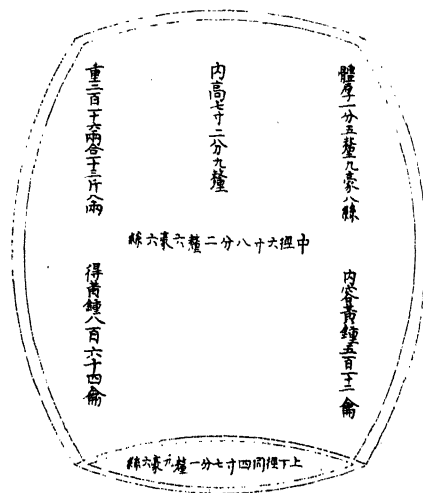 體厚一分五釐九豪八絲
内容黃鍾五百一十二龠
内高七寸二分九釐
中徑六寸八分二釐六豪六絲
重二百一十六兩合一十三斤八兩
得黃鍾八百六十四龠
上下徑同四寸七分一釐九豪六絲